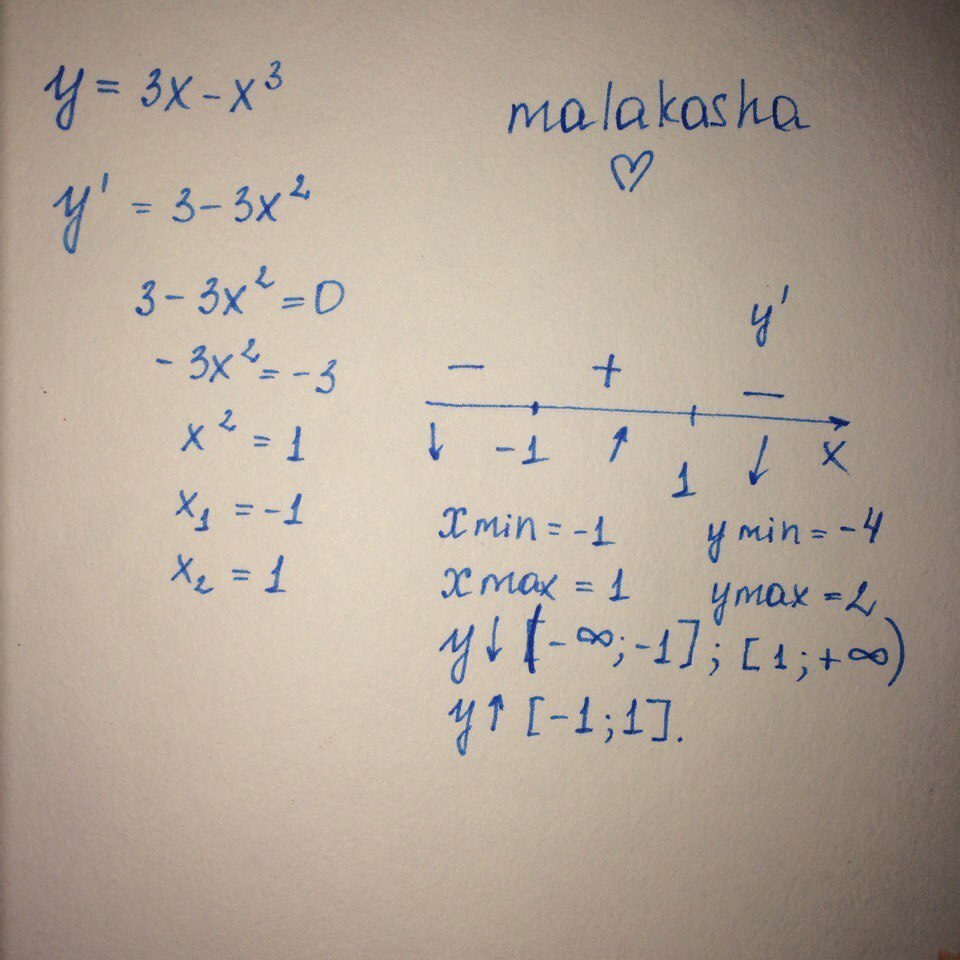 y = 3x - x³
malakasha
♡
y' = 3 - 3x²
3 - 3x² = 0
- 3x² = -3
x² = 1
x₁ = -1
x₂ = 1
y'
− + −
↓ -1 ↑ 1 ↓ x
x min = -1 y min = -4
x max = 1 y max = 2
y↓ (-∞; -1]; [1; +∞)
y↑ [-1; 1].